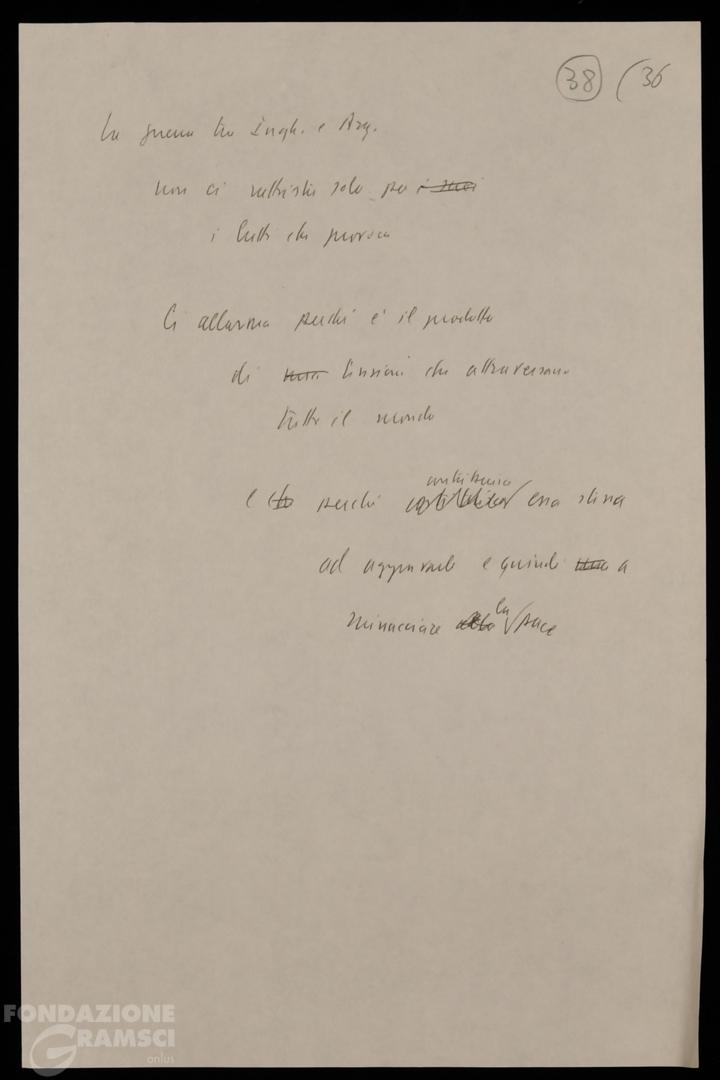 38 (36
La guerra tra Ingh. e Arg.
non ci rattrista solo per i
i lutti che provoca
Ci allarma perché è il prodotto
di tensioni che attraversano
tutto il mondo
contribuisce
e perché essa stessa
ad aggravarle e quindi a
la
minacciare pace
FONDAZIONE
GRAMSCI
onlus